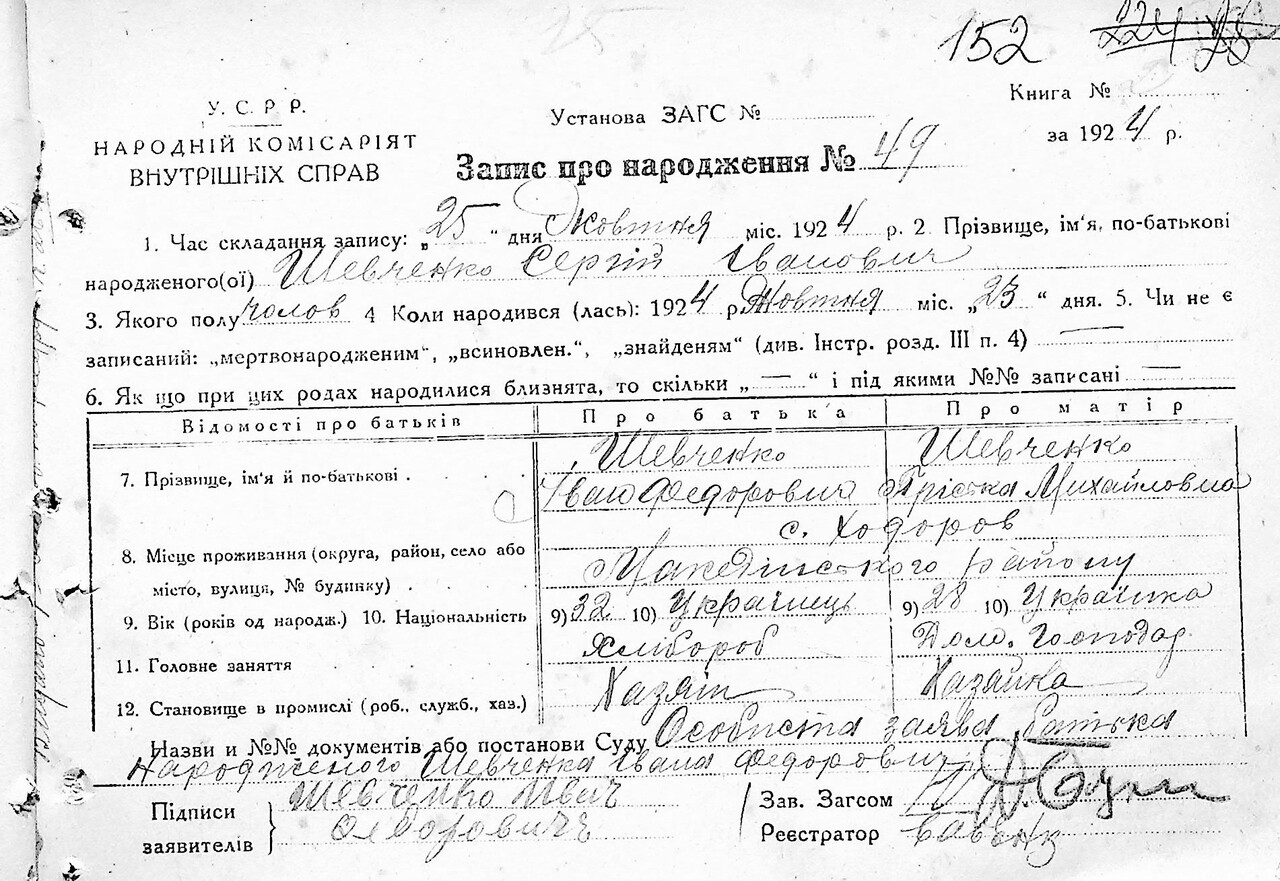 152 224 28
Книга №
У. С. Р. Р.
Установа ЗАГС №
за 1924 р.
НАРОДНІЙ КОМІСАРІЯТ
ВНУТРІШНІХ СПРАВ
Запис про народження № 49
1. Час складання запису: „25“ дня Жовтня міс. 1924 р. 2 Прізвище, ім‘я, по-батькові
народженого(ої) Шевченко Сергій Іванович
3. Якого полу чолов 4 Коли народився (лась): 1924 р. Жовтня міс. „23“ дня. 5. Чи не є
записаний: „мертвонародженим“, „всиновлен.“, „знайденям“ (див. Інстр. розд. III п. 4) —
6. Як що при цих родах народилися близнята, то скільки „—“ і під якими №№ записані —
Відомості про батьків Про батька Про матір
Шевченко Шевченко
7. Прізвище, ім‘я й по-батькові . Іван Федорович Михайловна
с. Ходоров
8. Місце проживання (округа, район, село або
місто, вулиця, № будинку) . району
9. Вік (років од народж.) 10. Національність 9) 32 10) Українець 9) 28 10) Українка
11. Головне заняття Хлібороб Дом. Господар.
12. Становище в промислі (роб., служб., хаз.) Хазяін Хазяйка
Назви и №№ документів або постанови Суду Особиста заява батька
Народженого Шевченка Івана Федоровича
Підписи
заявителів
Шевченко Иван
Зав. Загсом
Реєстратор